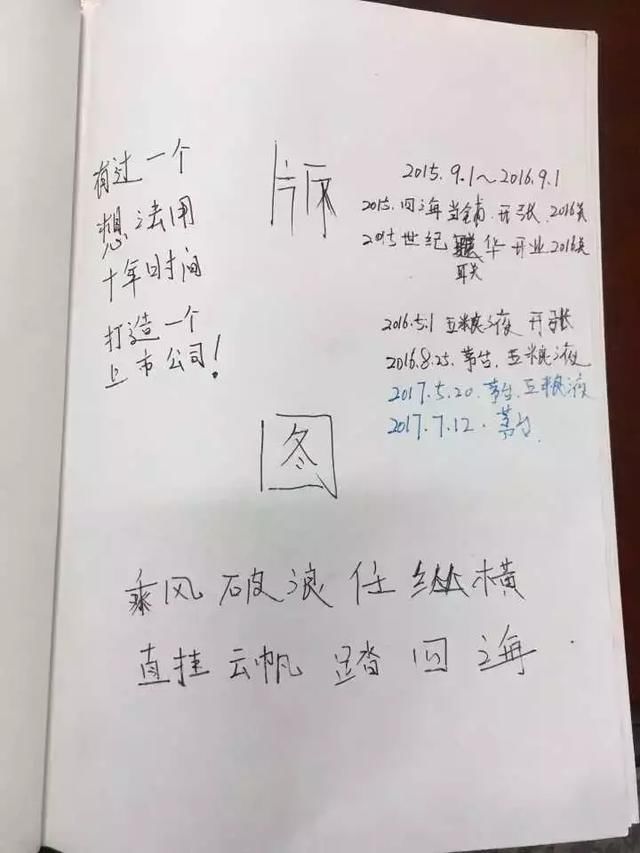 有过一个
想法用
十年时间
打造一个
上市公司！
版
图
2015.9.1～2016.9.1
2015.四海当铺.开张.2016关
2015世纪 华开业2016关
联
2016.5.1 五粮液 开张
2016.8.25.茅台.五粮液
2017.5.20.茅台.五粮液
2017.7.12.茅台.
乘风破浪任纵横
直挂云帆踏四海.